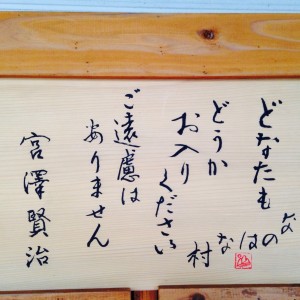 どなたも
どうか
お入りください
ご遠慮は
ありません
宮澤賢治
なのはな村